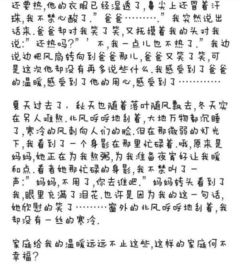 还要热,他的衣服已经湿透了,鼻尖上还冒着汗
珠,我不禁心酸了。”爸爸………。”我突然说出
话来,爸爸却对我笑了笑,又抚摸着我的头对我
说:”还热吗?”’不,我一点儿也不热了。”我边
说边吧风扇转向到爸爸那儿,爸爸又笑了笑,可
是这次他却没有再多说些什么,我感受到了爸爸
的温暖,感受到了他的用心……感受到了……
夏天过去了,秋天也随着落叶随风飘去,冬天实
在另人难熬,北风呼呼地刮着,大地万物都沉睡
了,寒冷的风刺向人们的脸,但在那微弱的灯光
下,我看到了一个身影在那里忙碌着,哦,原来是
妈妈,她正在为我熬粥,为我准备夜宵好让我暖
和点,看着她那忙碌的身影,我不禁叫了一
声:”妈妈,不用了,你去谁吧。”妈妈转头看到了
我,眼里充满了泪花,也许是因为我的这一句话,
她欣慰的笑了………窗外的北风呼呼地刮着,我
却没有一丝的寒冷.
家庭给我的温暖远远不止这些,这样的家庭何不
幸福?